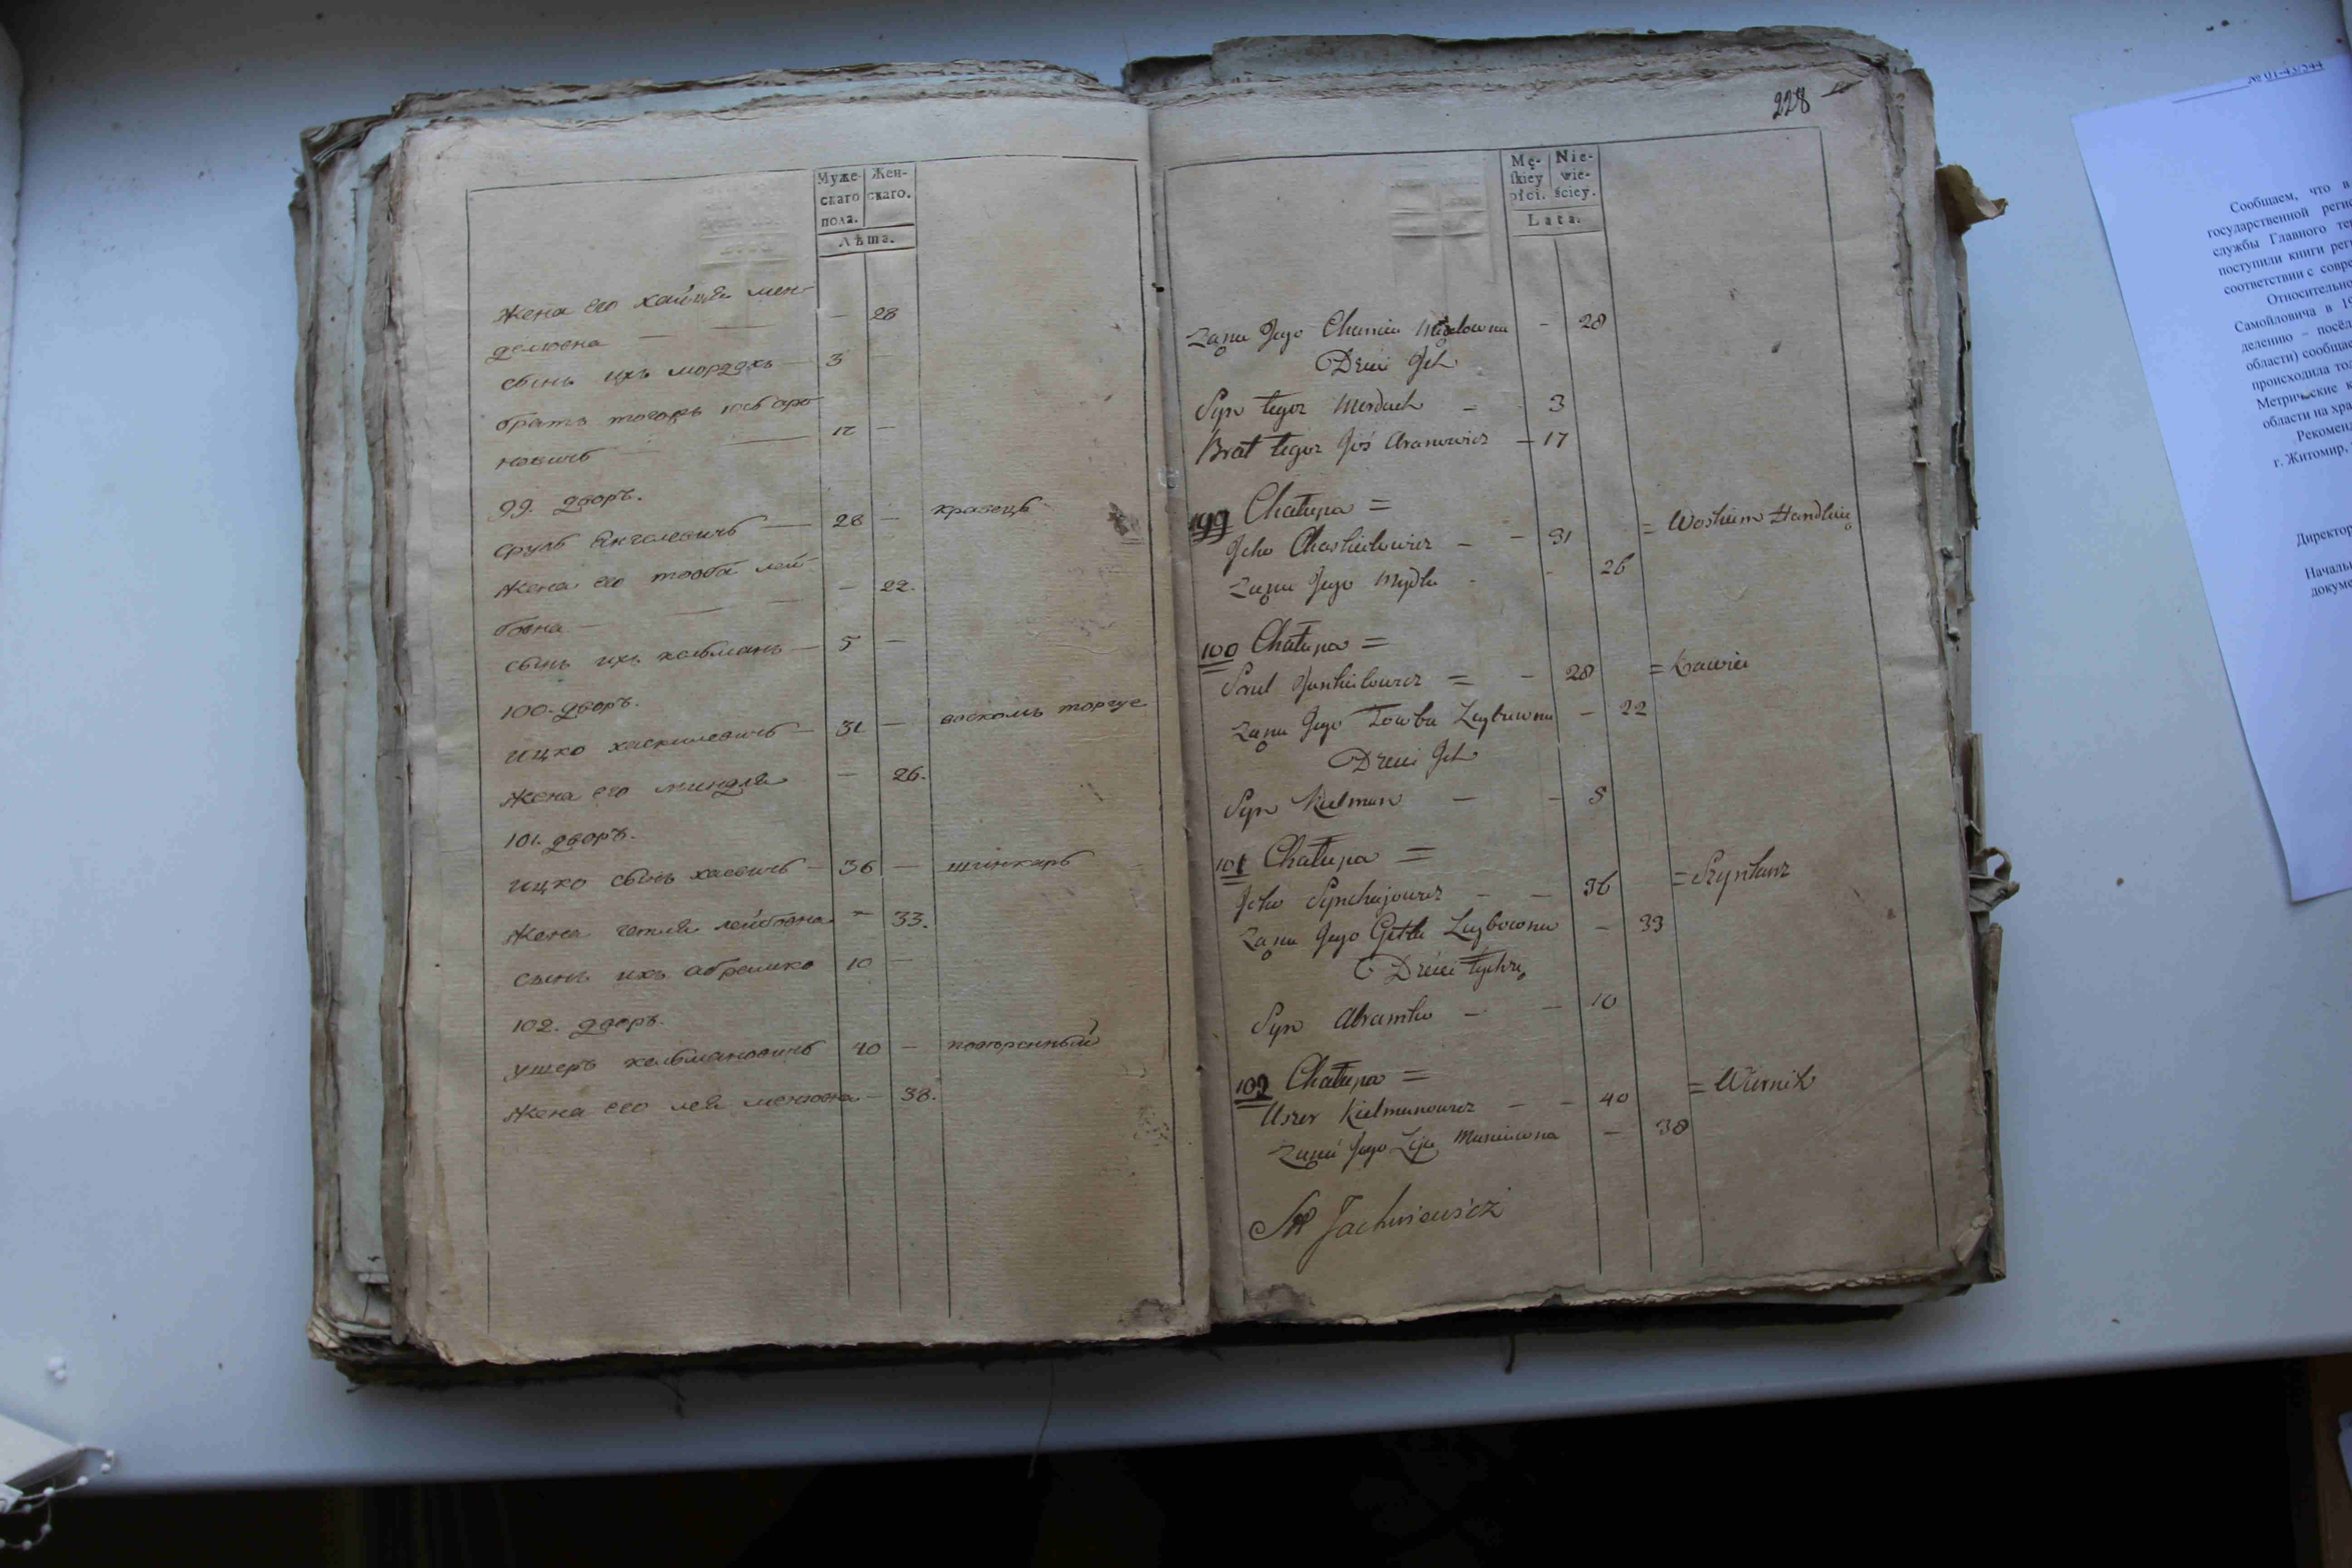 Муже-
скаго
пола.
Жен-
скаго.
Лѣта.
жена его хайка мен-
делювна — — 28
сынъ ихъ мордхъ — 3
братъ тогожъ іось аро
новичъ — 17 —
99. дворъ.
сруль янкелевичъ — 28 — кравецъ
жена его товба лей-
бовна — — 22.
сынъ ихъ кельманъ — 5 —
100. дворъ.
ицко хаскилевичъ — 31 — воскомъ торгуе
жена его миндля — 26.
101. дворъ.
ицко — 36 — шинкарь
жена гетля лейбовна — 33.
сынъ ихъ абрамко 10 —
102. дворъ.
ушеръ кельмановичъ 40 —
жена его лея — 38.
228
Mę-
skiey
płci.
Nie-
wie-
ściey.
Lata.
Żana Jego — 28
Dzieci Jch
Syn tegoż Morduch — 3
Brat tegoż Joś Aranowicz — 17
99 Chałupa =
Jcko Chaskielowicz — — 31 = Woskiem Handluię
Żana Jego Mydla - - 26
100 Chałupa =
Srul Jankielowicz = — 28 = Krawiec
Żana Jego Towba Leybowna — 22
Dzieci Jch
Syn Kielman — — 5
101 Chałupa =
Jcko Synchajowicz — — 36 = Szynkarz
Żana Jego Getla Leybowna — 33
Dzieci Tychże
Syn Abramko — — 10
102 Chałupa =
Uszer Kielmanowicz — — 40 = Wiernik
Żana Jego Leja — 38
Jachniewicz
№ 01-43/544
Сообщаем, что в
государственной реги
службы Главного те
поступили книги рег
соответствии с совре
Относительно
Самойловича в 19
делению – посёл
области) сообща
происходила то
Метрические к
области на хра
Рекоменд
г. Житомир,
Директор
Начальн
докуме